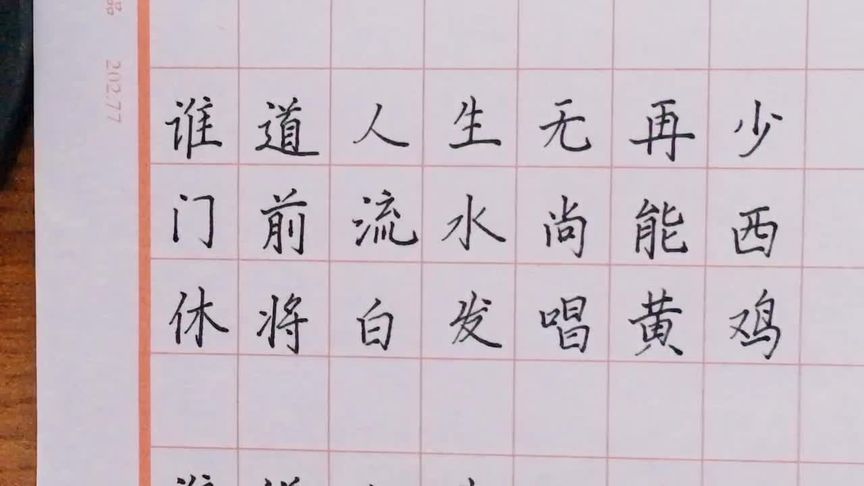 202.77
谁道人生无再少
门前流水尚能西
休将白发唱黄鸡